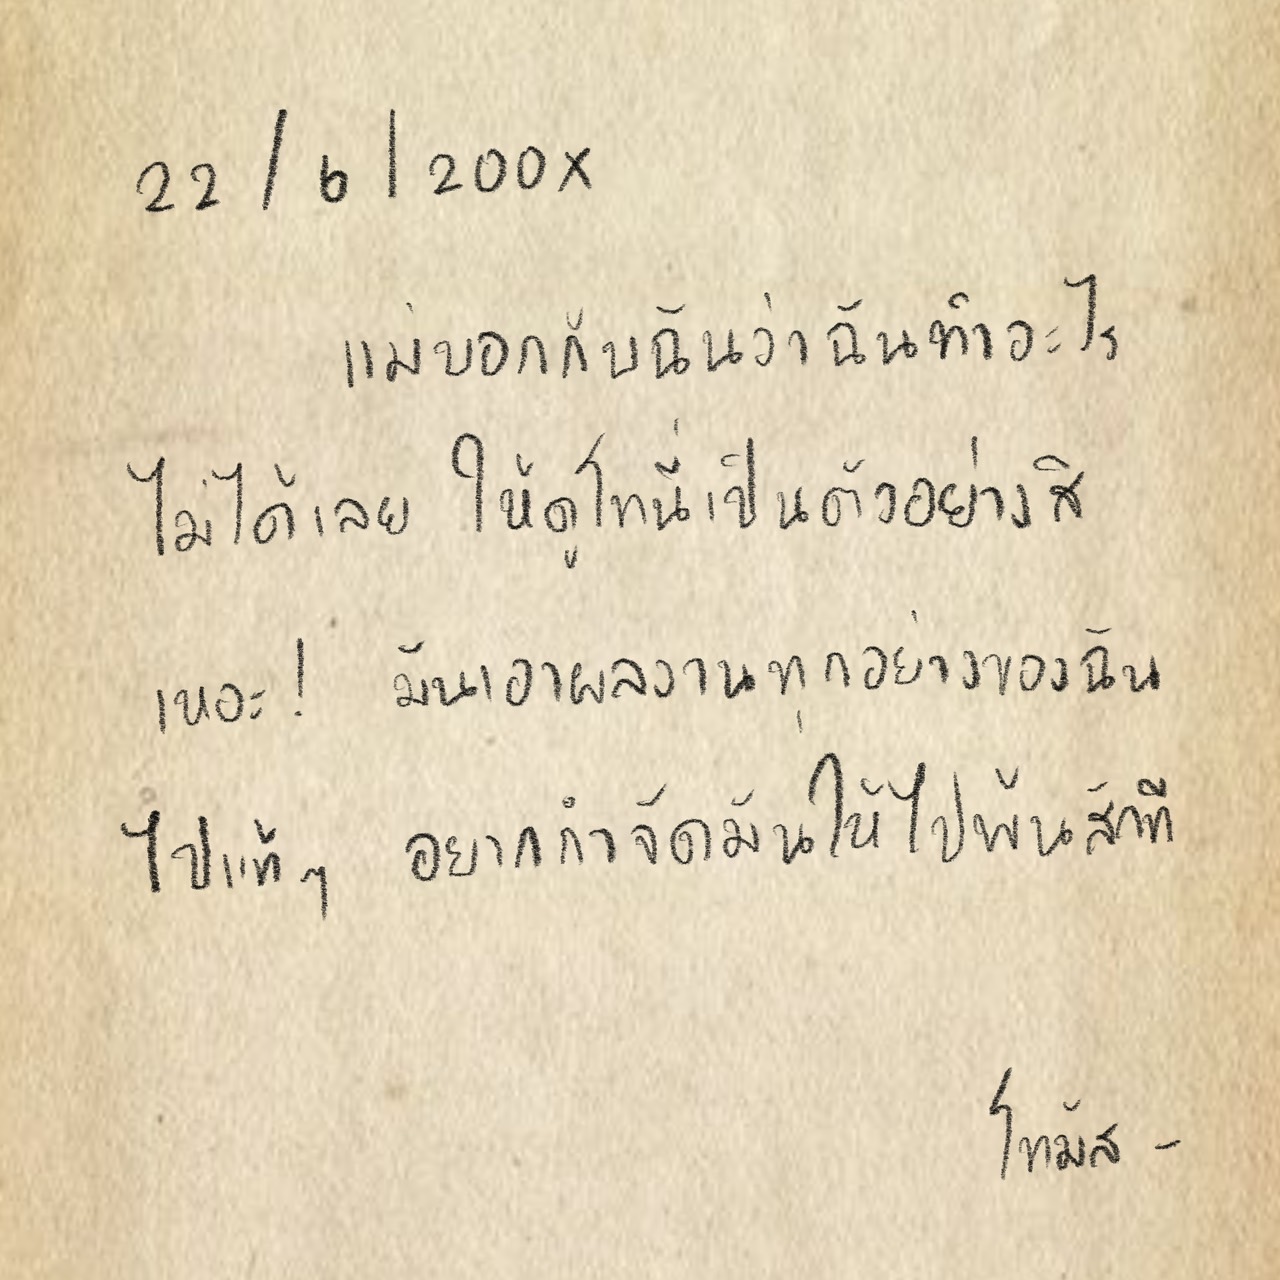 22/6/200X
แม่บอกกับฉันว่าฉันทำอะไร
ไม่ได้เลย ให้ดูโทนี่เป็นตัวอย่างสิ
เหอะ! มันเอาผลงานทุกอย่างของฉัน
ไปแท้ๆ อยากกำจัดมันให้ไปพ้นสักที
โทมัส -